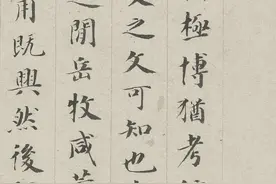 極博猶考
之文可知也
閒岳牧咸
用既興然後